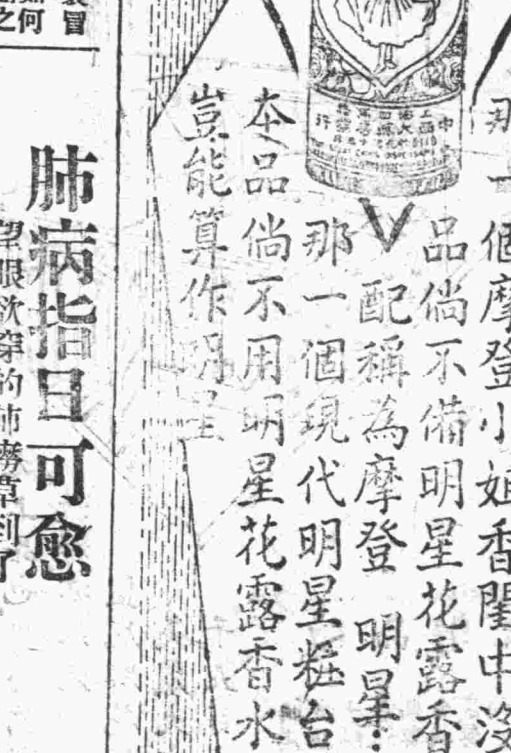 那一個摩登小姐香閨中沒
品倘不備明星花露香
配稱為摩登 明星
那一個現代明星粧台
本品倘不用明星花露香水
豈能算作明星
冒
何
之
肺病指日可愈
望眼欲穿的肺癆草到了